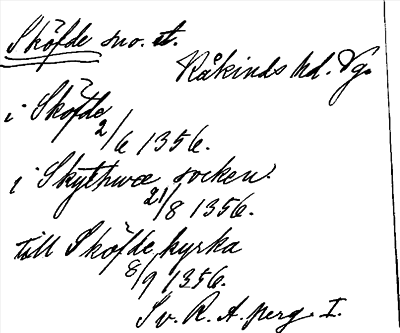 Sköfde sno. st.
Kåkinds hd. Vg.
i Sköfde
2/6 1356.
i Skythwæ socken.
21/8 1356.
till Sköfde kyrka
8/9 1356.
Sv. R. A. perg. I.